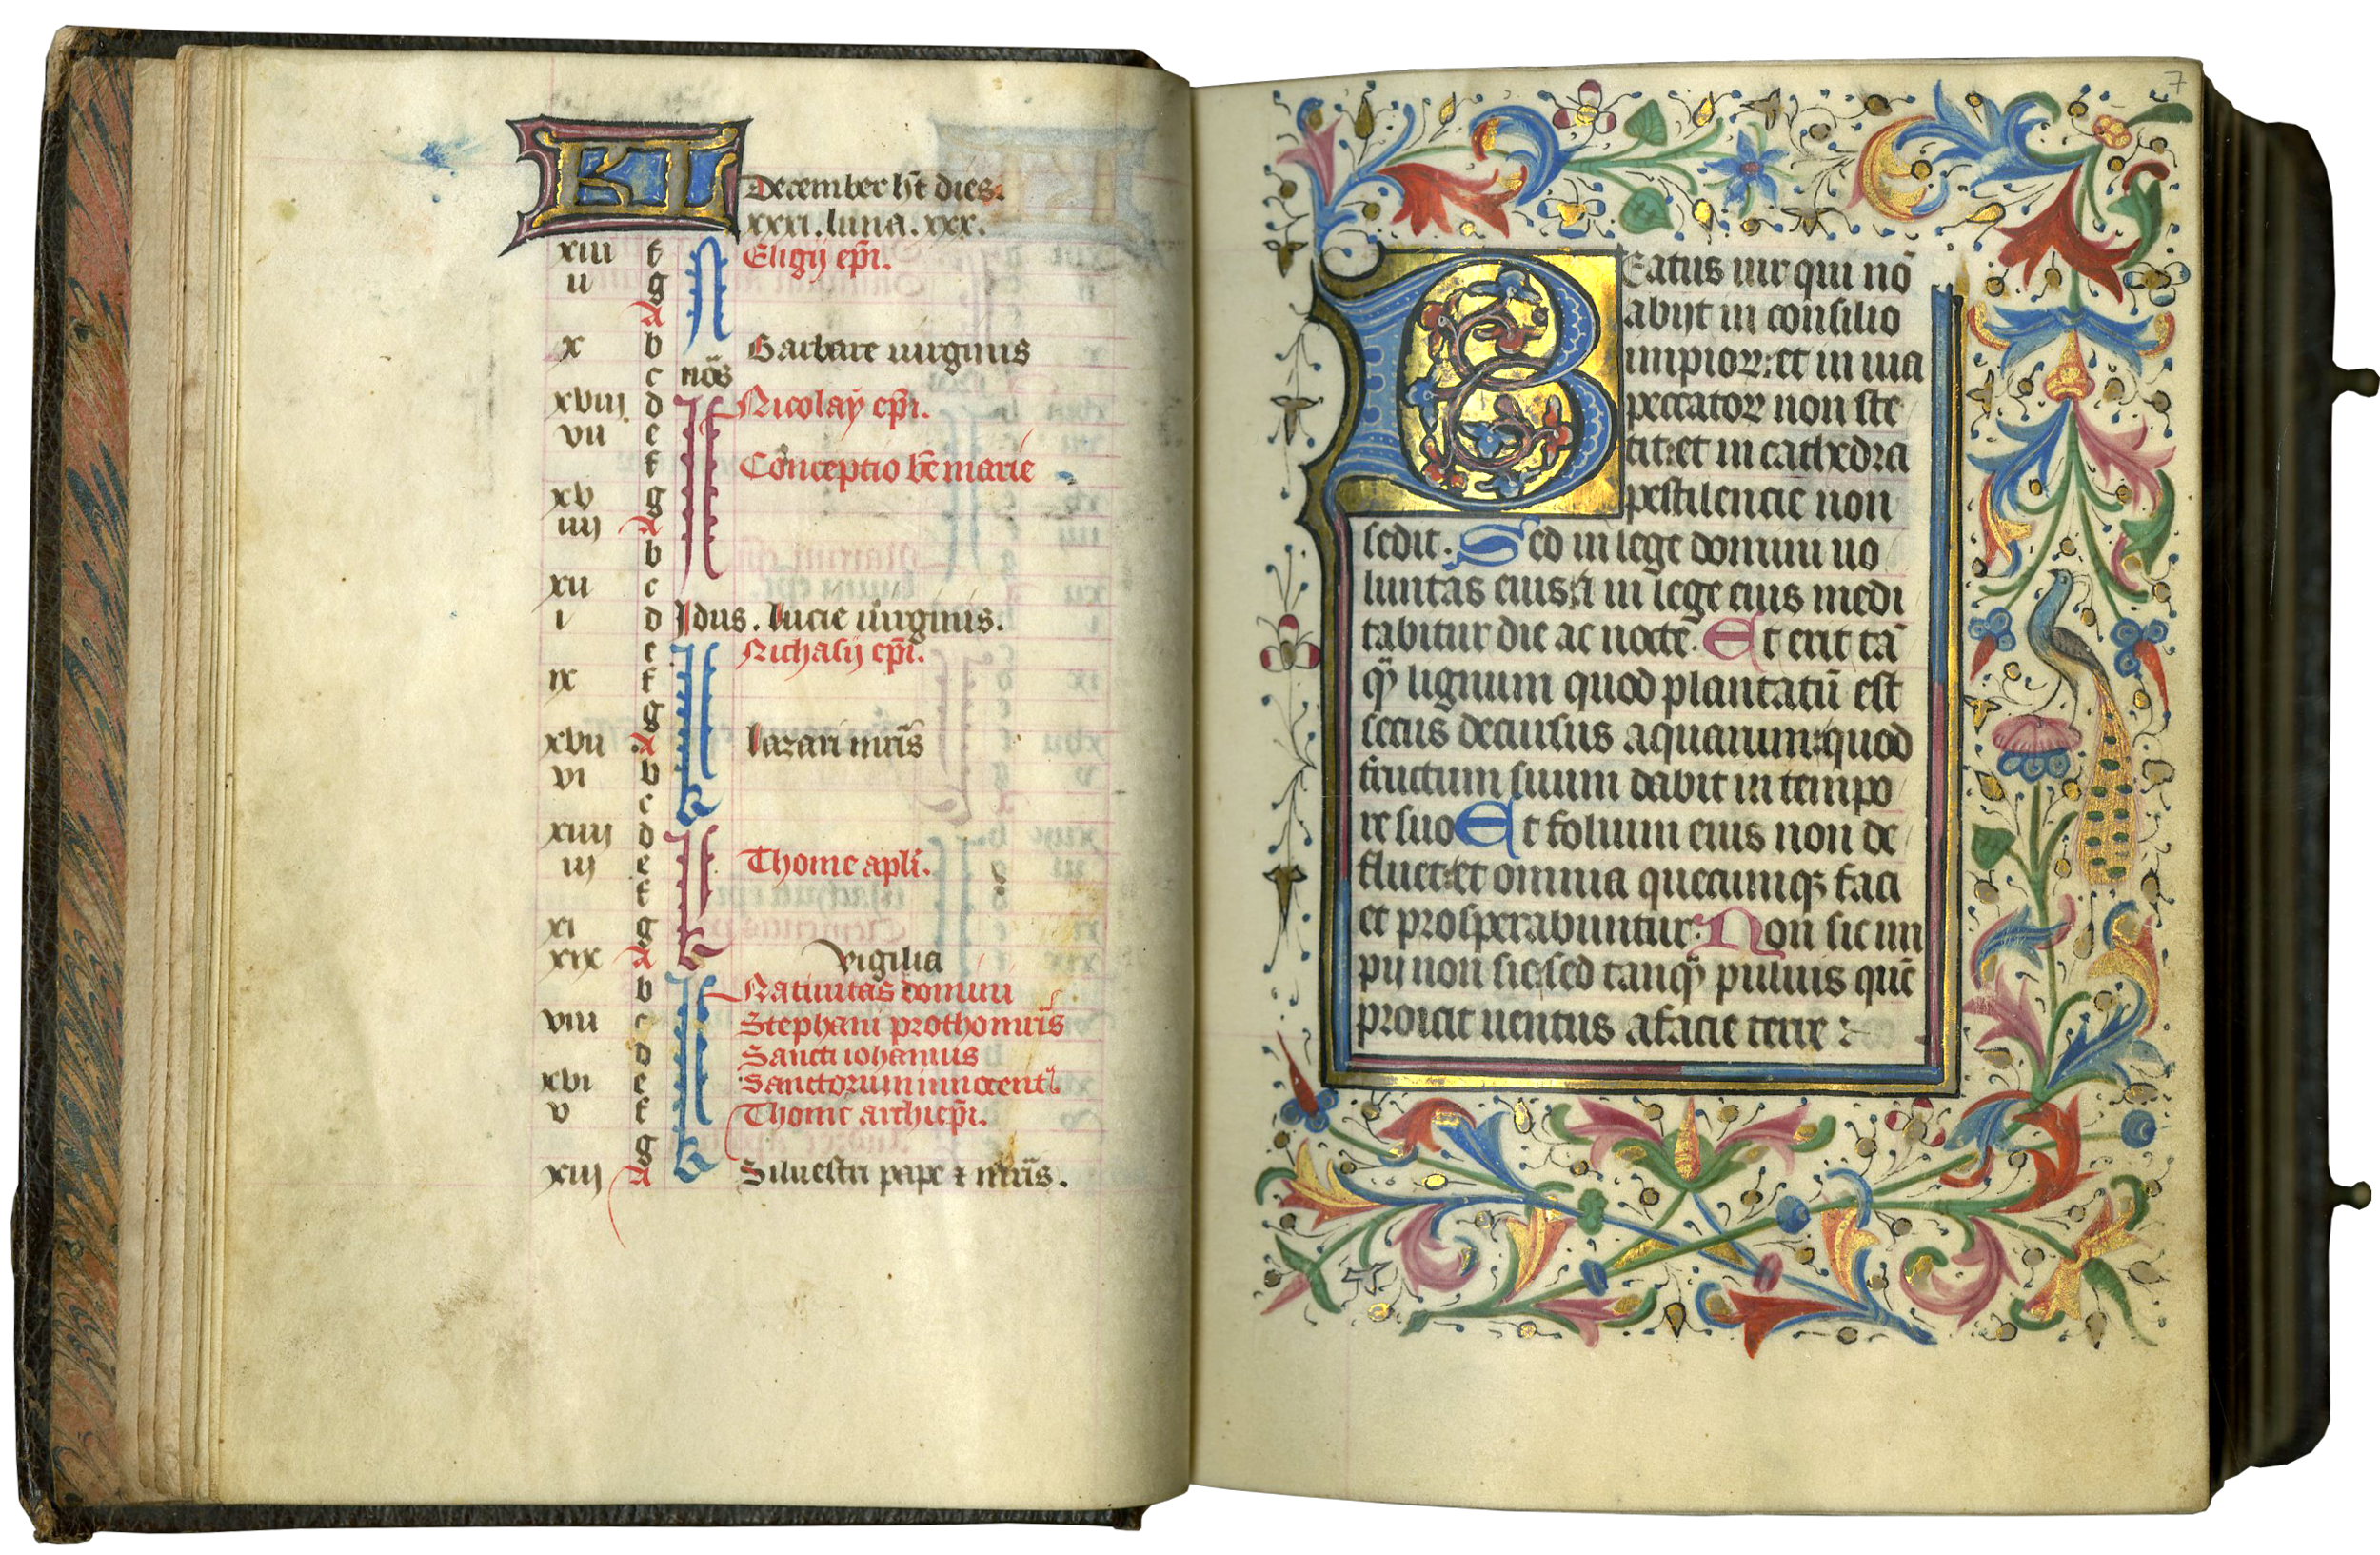 KL
December h̄t dies.
xxxi. luna. xxx.
xiii f Eligij ep̄i.
ii g
A
x b Barbare uirginis
c nōs
xviij d Nicolaÿ ep̄i.
vii e
f Conceptio bē marie
xv g
iiij A
b
xii c
i d Idus. lucie uirginis.
e Nichasij ep̄i.
ix f
g
xvii A lazari mr̄is
vi b
c
xiiij d
iij e Thome apl̄i.
f
xi g
xix A vigilia
b Natiuitas domini
viii c Stephani prothomr̄is
d Sancti iohannis
xvi e Sanctorum innocent
v f Thome archiep̄i.
g
xiij A Siluestri pape ⁊ mr̄is.
7
Beatus uir qui nō
abijt in consilio
impioꝝ: et in uia
peccatoꝝ non ste
tit: et in cathedra
pestilencie non
sedit. Sed in lege domini uo
luntas eius: ⁊ in lege eius medi
tabitur die ac nocte. Et erit tā
qͣ lignum quod plantatū est
secus decursus aquarum: quod
fructum suum dabit in tempo
re suo Et folium eius non de
fluet: et omnia quecumqꝫ faci
et prosperabuntur. Non sic im
pij non sic: sed tanqͣ puluis quē
proicit uentus a facie terre :